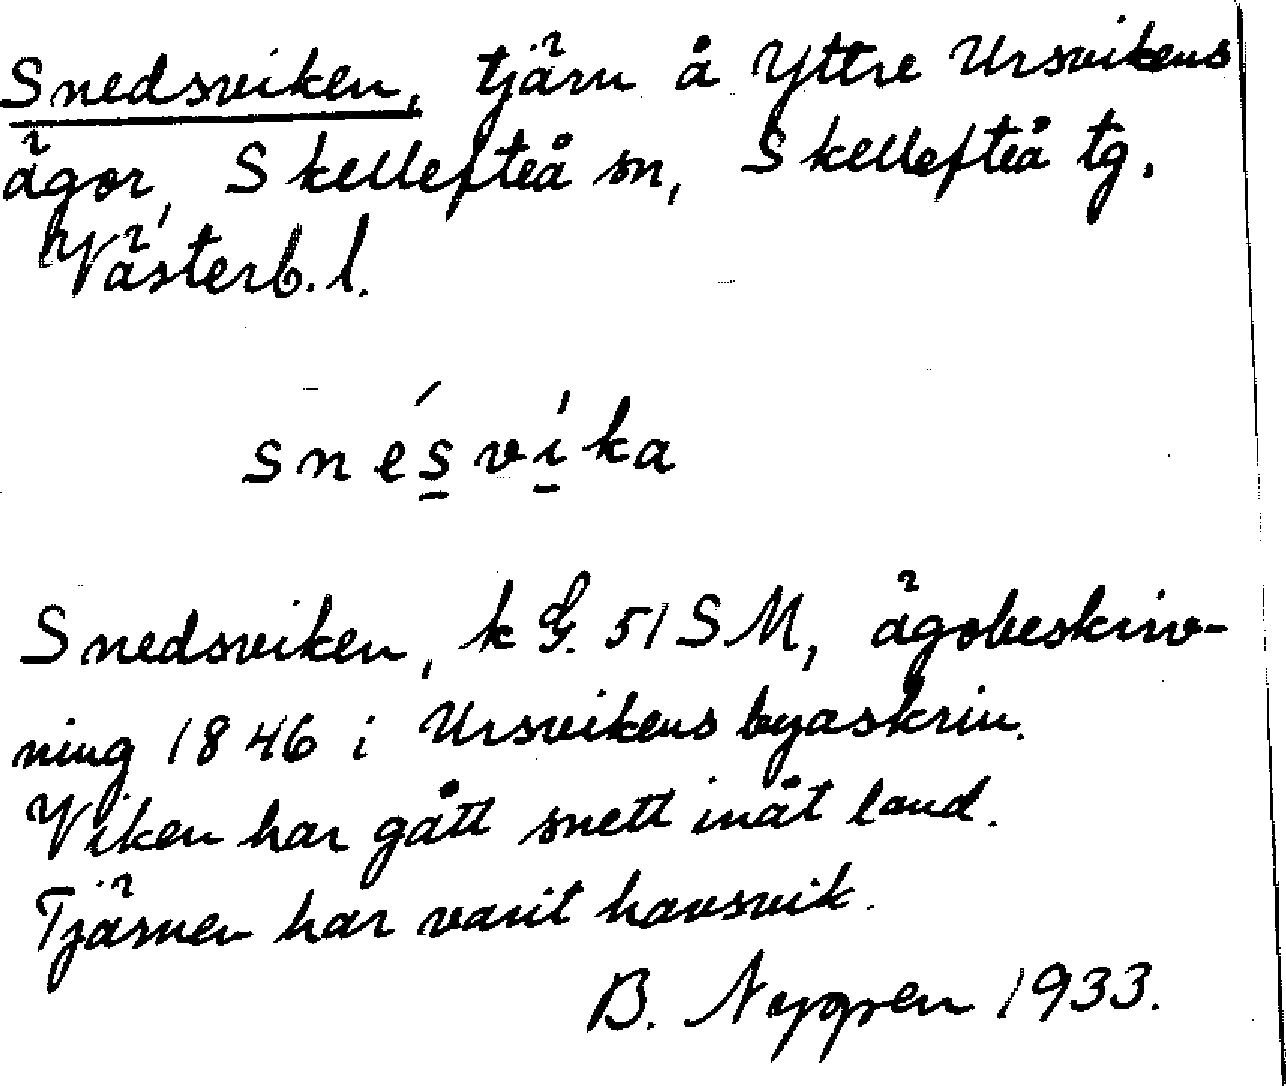 Snedsviken, tjärn å Yttre Ursvikens
ägor, Skellefteå sn, Skellefteå tg.
Västerb. l.
snés̲ví̲ka
Snedsviken, k G. 51 SM, ägobeskriv-
ning 1846 i Ursvikens byaskrin.
Viken har gått snett inåt land.
Tjärnen har varit havsvik.
B. Nygren 1933.